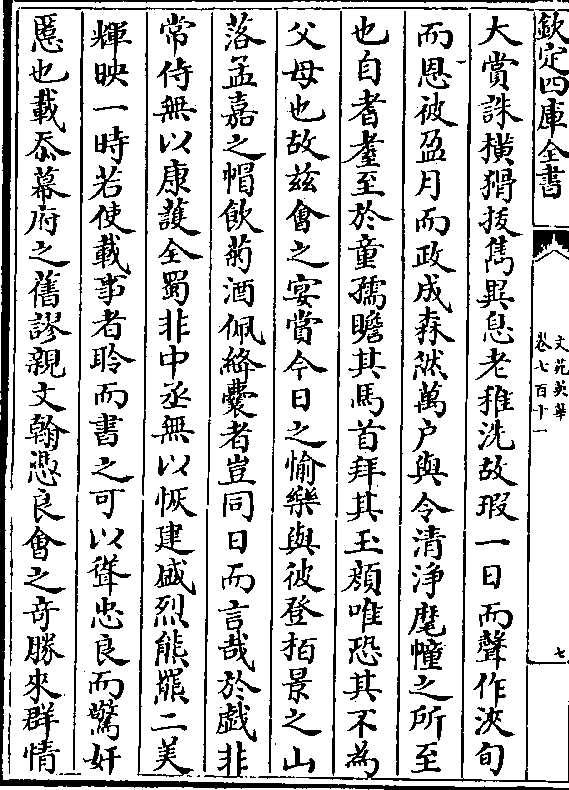 欽定四庫全書
文苑英華
卷七百十一
七
大賞誅橫猾拔雋異息老稚洗故瑕一日而聲作浹旬
而恩被盈月而政成森然萬户與令清淨麾幢之所至
也自耆耋至於童孺瞻其馬首拜其玉顔唯恐其不為
父母也故兹會之宴賞今日之愉樂與彼登拍景之山
落孟嘉之帽飲菊酒佩絳囊者豈同日而言哉於戲非
常侍無以康護全蜀非中丞無以恢建盛烈熊羆二美
輝映一時若使載事者聆而書之可以聳忠良而驚奸
慝也載忝幕府之舊謬親文翰憑良會之奇勝來群情